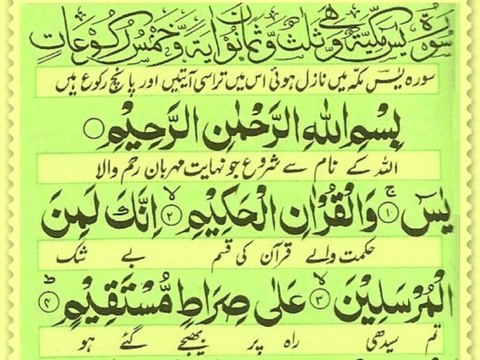 سورة يس مكية وهي ثلث وثمانون اية وخمس ركوعات
سورہ یٰسٓ مکہ میں نازل ہوئی اس میں تراسی آیتیں اور پانچ رکوع ہیں
بِسْمِ اللهِ الرَّحْمٰنِ الرَّحِيْمِ ○
اللہ کے نام سے شروع جو نہایت مہربان رحم والا
يٰسٓ ۚ﴿١﴾ وَالْقُرْاٰنِ الْحَكِيْمِ ۙ﴿٢﴾ اِنَّكَ لَمِنَ
حکمت والے قرآن کی قسم بے شک
الْمُرْسَلِيْنَ ۙ﴿٣﴾ عَلٰى صِرَاطٍ مُّسْتَقِيْمٍ ؕ﴿٤﴾
تم سیدھی راہ پر بھیجے گئے ہو